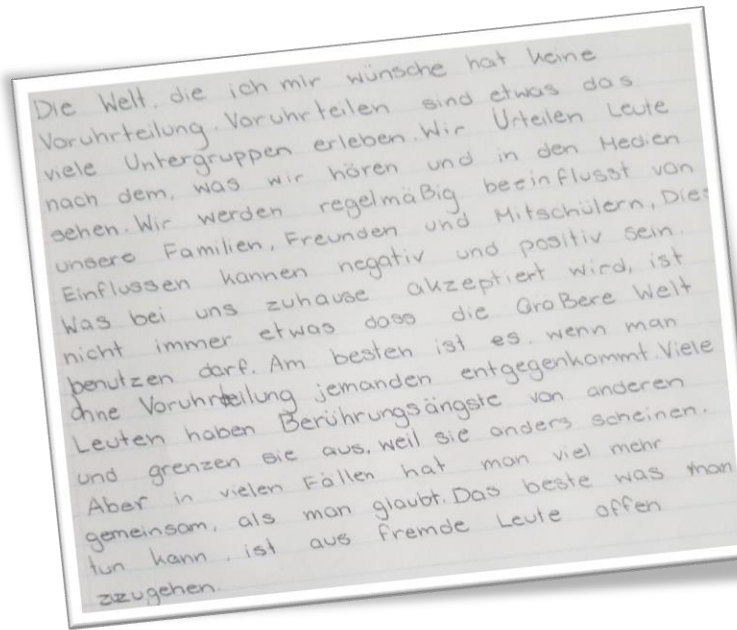 Die Welt, die ich mir wünsche hat keine
Voruhrteilung. Voruhrteilen sind etwas das
viele Untergruppen erleben. Wir Urteilen Leute
nach dem, was wir hören und in den Medien
sehen. Wir werden regelmäßig beeinflusst von
unsere Familien, Freunden und Mitschülern, Dies
Einflussen kannen negativ und positiv sein.
Was bei uns zuhause akzeptiert wird, ist
nicht immer etwas dass die Größere Welt
benutzen darf. Am besten ist es, wenn man
ohne Voruhrteilung jemanden entgegenkommt. Viele
Leuten haben Berührungsängste von anderen
und grenzen sie aus, weil sie anders scheinen.
Aber in vielen Fällen hat man viel mehr
gemeinsam, als man glaubt. Das beste was man
tun kann, ist aus fremde Leute offen
zuzugehen.